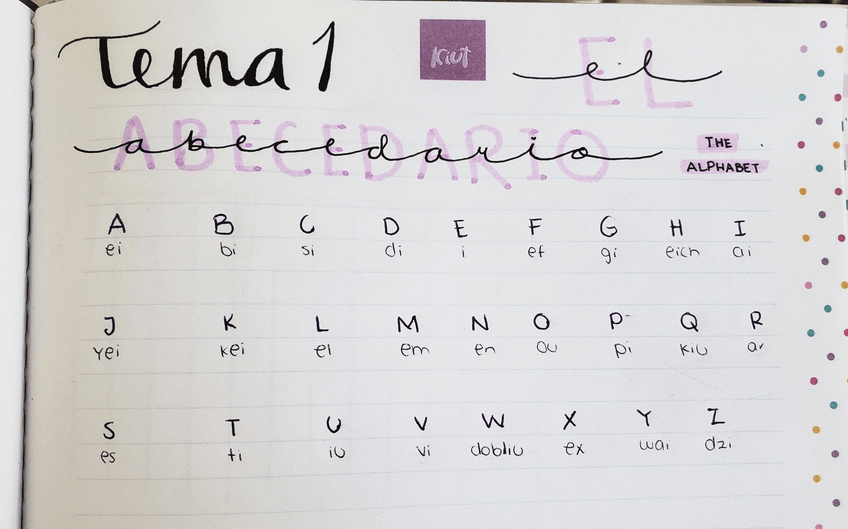 Tema 1
Kiut
el
EL
abecedario
ABECEDARIO
THE
ALPHABET
A B C D E F G H I
ei bi si di i ef gi eich ai
J K L M N O P Q R
yei kei el em en ou pi kiu ar
S T U V W X Y Z
es ti iu vi dobliu ex wai dzi